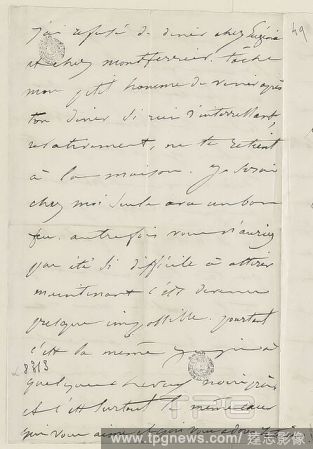 j'ai refusé de diner chez Eugénie
et chez montferrier. tâche
mon ptit homme de venir après
ton diner si rien d'interressant,
relativement, ne te retient
à la maison. je serai
chez moi seule avec un bon
feu. autrefois vous n'auriez
pas été si difficile à attirer
maintenant c'est devenu
presque impossible. pourtant
c'est la même
quelques cheveux noirs près
et c'est surtout le même cœur
qui vous aime et qui vous adore
49
8313
TPG
www.tpgnews.com/ 達志影像